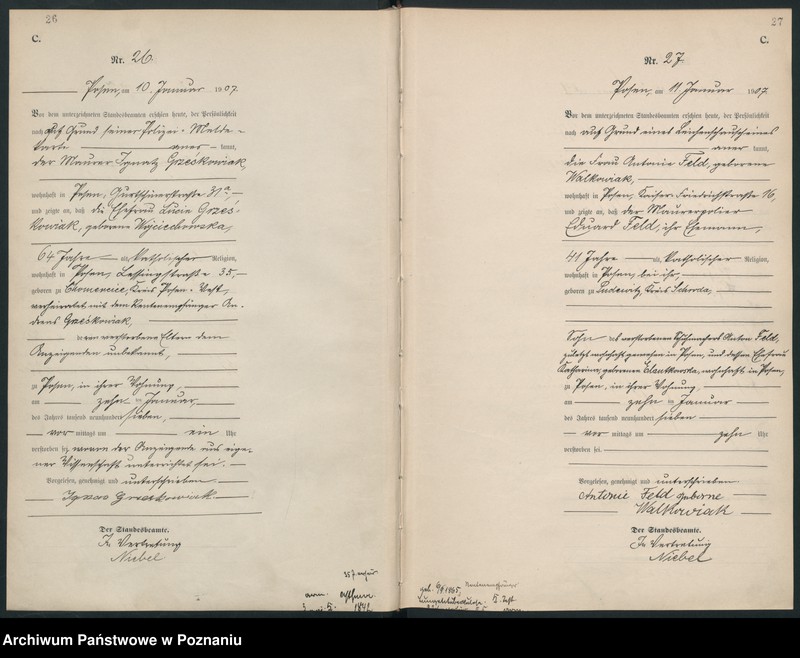 26
C.
Nr. 26
Posen, am 10. Januar 1907.
Vor dem unterzeichneten Standesbeamten erschien heute, der Persönlichkeit
nach auf Grund seiner Polizei-Melde-
karte aner kannt,
der Maurer Ignatz Grześkowiak,
wohnhaft in Posen, 31a,
und zeigte an, daß die Ehefrau Lucie Grześ-
kowiak, geborene Wojciechowska,
64 Jahre alt, katholischer Religion,
wohnhaft in Posen, Lessingstraße 35,
geboren zu Chomencice, Kreis Posen-West,
verheiratet mit dem Rentenempfänger An-
dreas Grześkowiak,
deren verstorbene Eltern dem
Anzeigenden unbekannt,
zu Posen, in ihrer Wohnung
am zehn ten Januar
des Jahres tausend neunhundert sieben,
vor mittags um ein Uhr
verstorben sei, wovon der Anzeigende aus eige-
ner Wissenschaft unterrichtet sei.
Vorgelesen, genehmigt und unterschrieben
Ignac Grzeskowiak
Der Standesbeamte.
In Vertretung
Niebel
27
C.
Nr. 27
Posen, am 11 Januar 1907.
Vor dem unterzeichneten Standesbeamten erschien heute, der Persönlichkeit
nach auf Grund eines Leichenschauscheines
aner kannt,
die Frau Antonie Feld, geborene
Walkowiak,
wohnhaft in Posen, Kaiser Friedrichstraße 16,
und zeigte an, daß der Maurerpolier
Eduard Feld, ihr Ehemann,
41 Jahre alt, katholischer Religion,
wohnhaft in Posen, bei ihr,
geboren zu Pudewitz, Kreis Schroda,
Sohn des verstorbenen Schuhmachers Anton Feld,
zuletzt wohnhaft gewesen in Posen, und dessen Ehefrau
Katharina, geborenen wohnhaft in Posen,
zu Posen, in ihrer Wohnung
am zehn ten Januar
des Jahres tausend neunhundert sieben
vor mittags um zehn Uhr
verstorben sei.
Vorgelesen, genehmigt und unterschrieben
Antonie Feld geborne
Walkowiak
Der Standesbeamte.
In Vertretung
Niebel
Archiwum Państwowe w Poznaniu